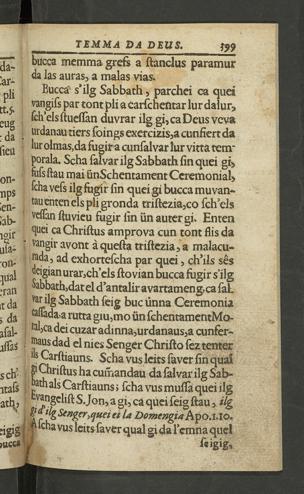 TEMMA DA DEUS. 399
bucca memma gress a stanclus paramur
da las auras, a malas vias.
Bucca s'ilg Sabbath, parchei ca quei
vangiss par tont pli a earschentar lur dalur,
sch'els stuessan duvrar ilg gi, ca Deus veva
urdanau tiers soings exercizis, a cunfiert da
lur olmas, da fugir a cunsalvar lur vitta tem-
porala. Scha salvar ilg Sabbath sin quei gi,
fuss stau mai ün Schentament Ceremonial,
scha vess ilg fugir sin quei gi bucca muvan-
tau enten els pli gronda tristezia, co sch'els
vessan stuvieu fugir sin ün auter gi. Enten
quei ca Christus amprova cun tont flis da
vangir avont à questa tristezia, a malacu-
rada, ad exhortescha par quei, ch'ils sês
deigian urar, ch'els stovian bucca fugir s'ilg
Sabbath, dat el d'antalir avartameng, ca sal-
var ilg Sabbath seig buc ünna Ceremonia
cassada a rutta giu, mo ün schentament Mo-
ral, ca dei cuzar adinna, urdanaus, a cunfer-
maus dad el nies Senger Christo sez tenter
ils Carstiauns. Scha vus leits saver sin qual
gi Christus ha cum̃andau da salvar ilg Sab-
bath als Carstiauns; scha vus mussa quei ilg
Evangelist S. Jon, a gi, ca quei seig stau, ilg
gi d'ilg Senger, quei es la Domengia Apo. 1. 10.
A scha vus leits saver qual gi da l'emna quel
seigig,